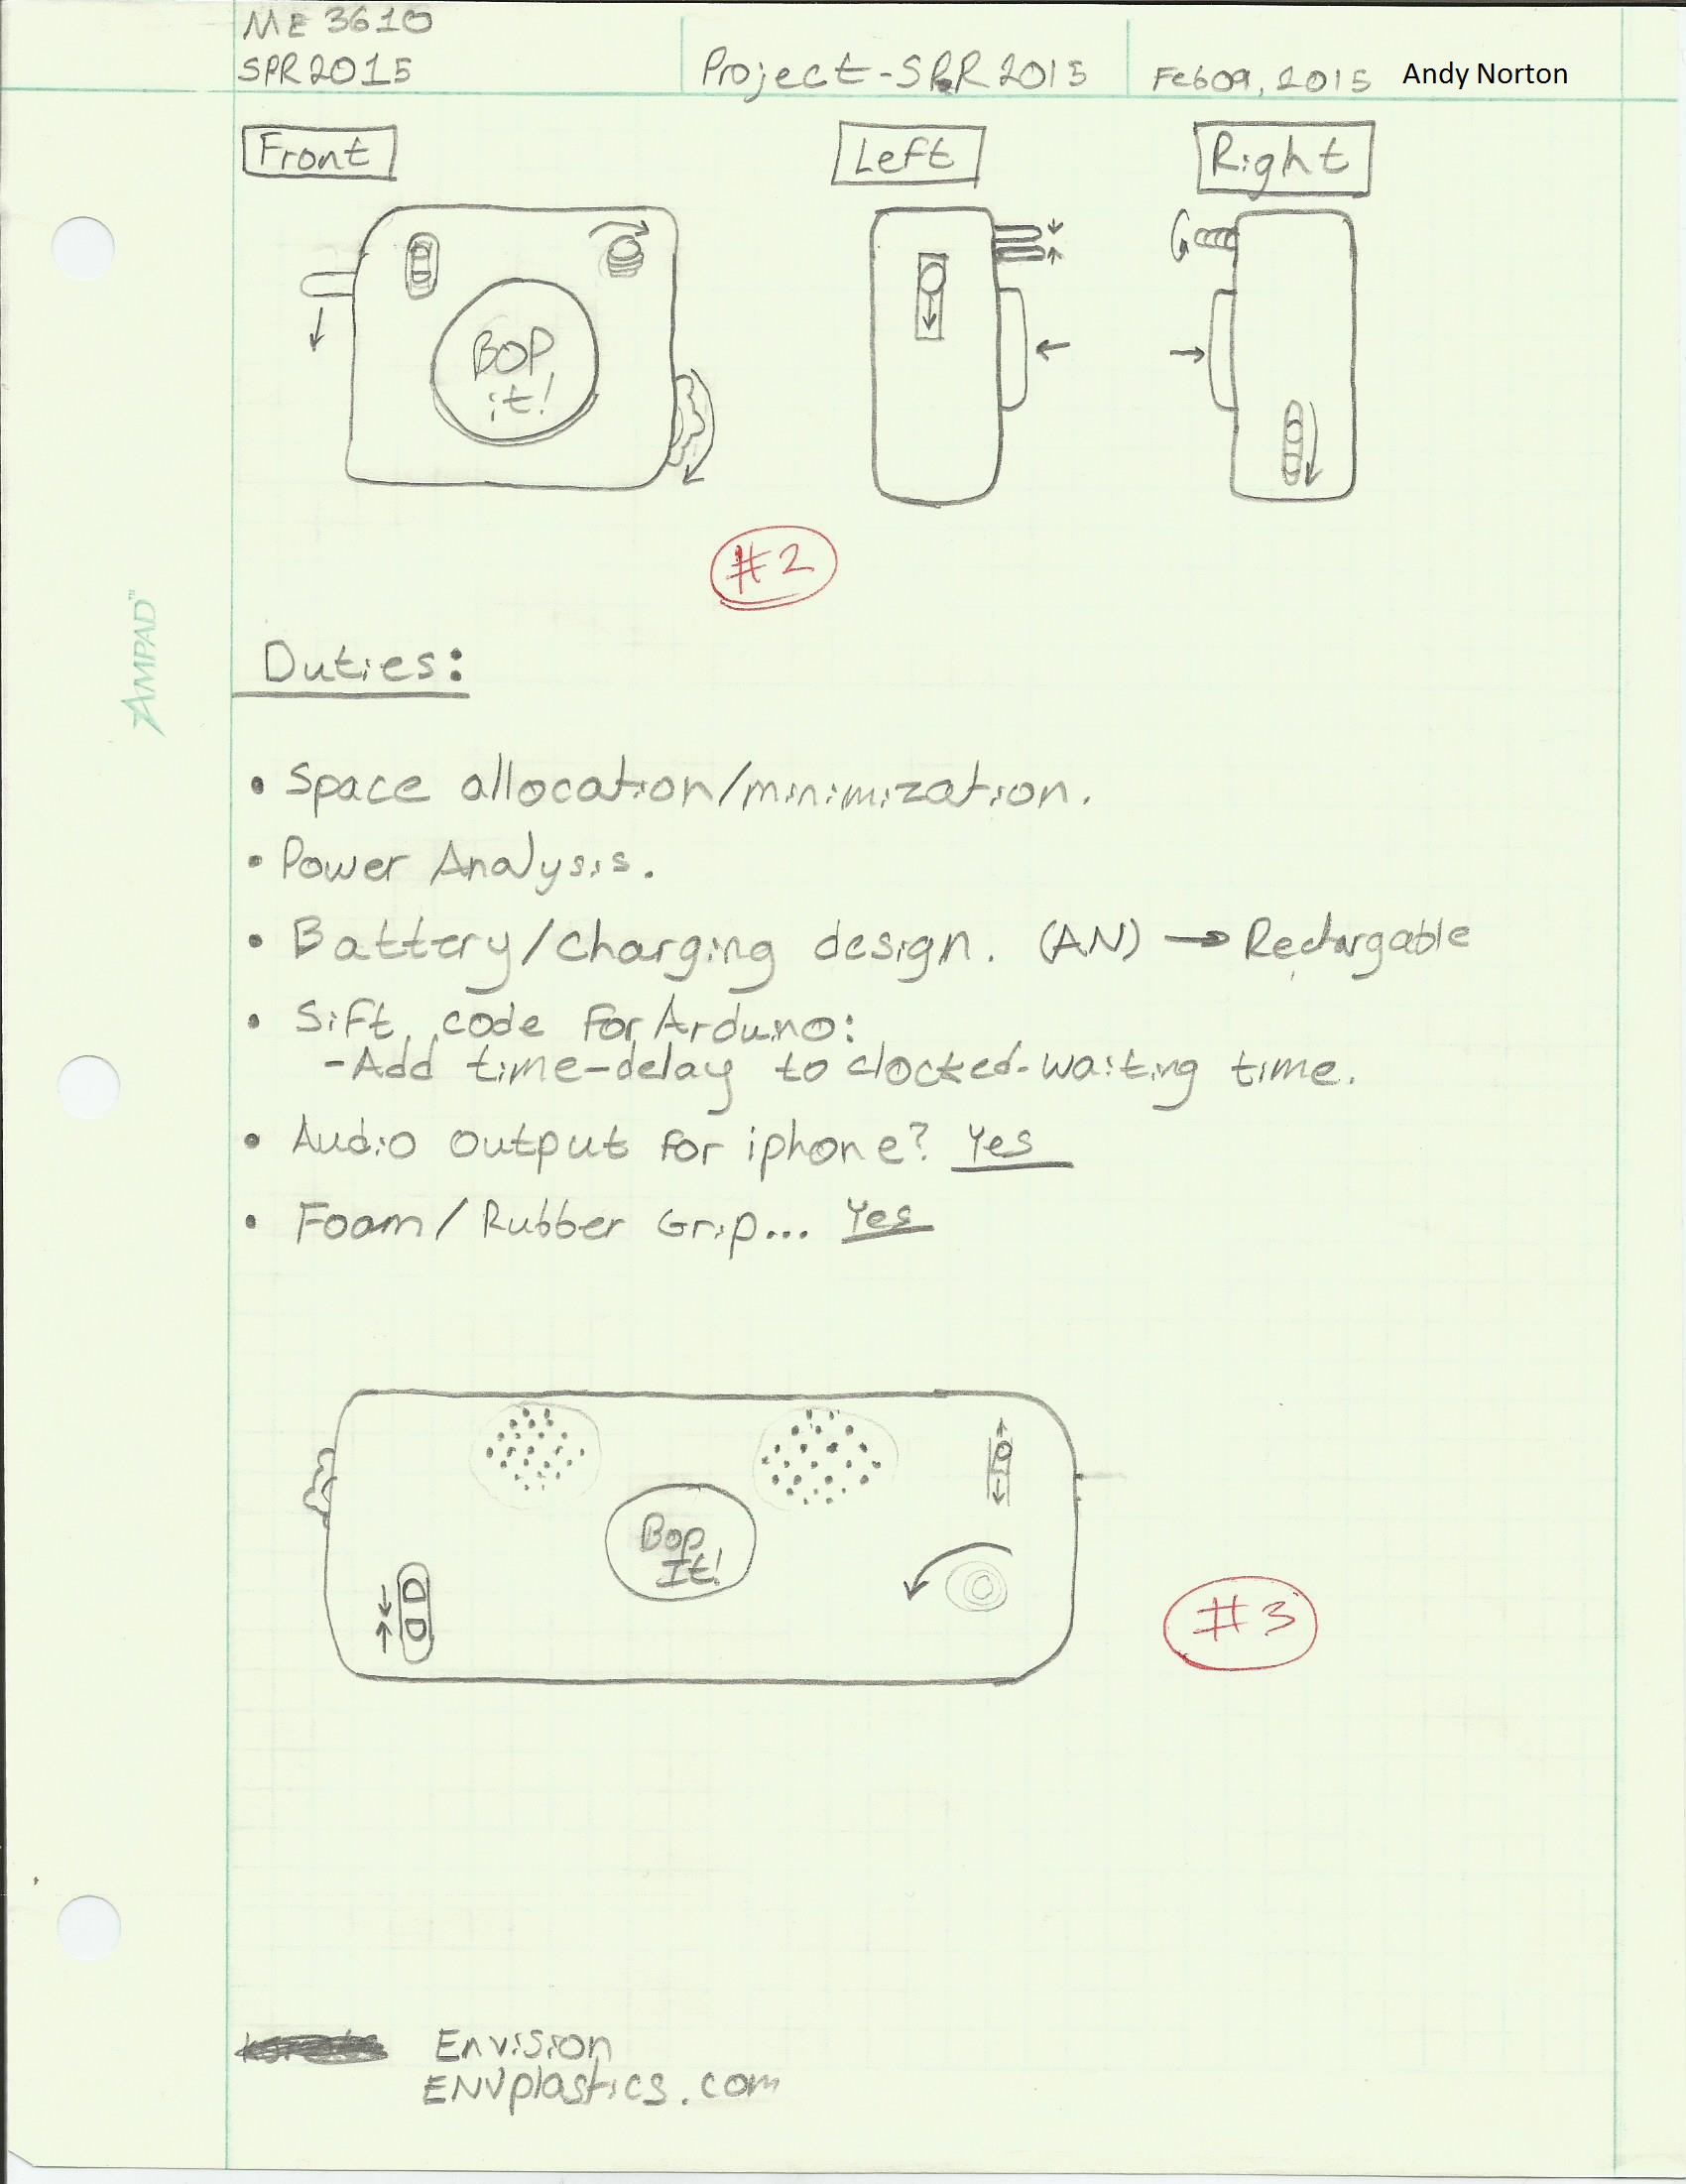 ME 3610
SPR 2015
Project-SPR 2015
Feb 09, 2015
Andy Norton
Front
Left
Right
BOP
it!
#2
AMPAD™
Duties:
• Space allocation/minimization.
• Power Analysis.
• Battery/charging design. (AN) → Rechargable
• Sift code for Arduino:
-Add time-delay to clocked-waiting time.
• Audio output for iphone? Yes
• Foam/Rubber Grip... Yes
Bop
It!
#3
Envision
ENVplastics.com